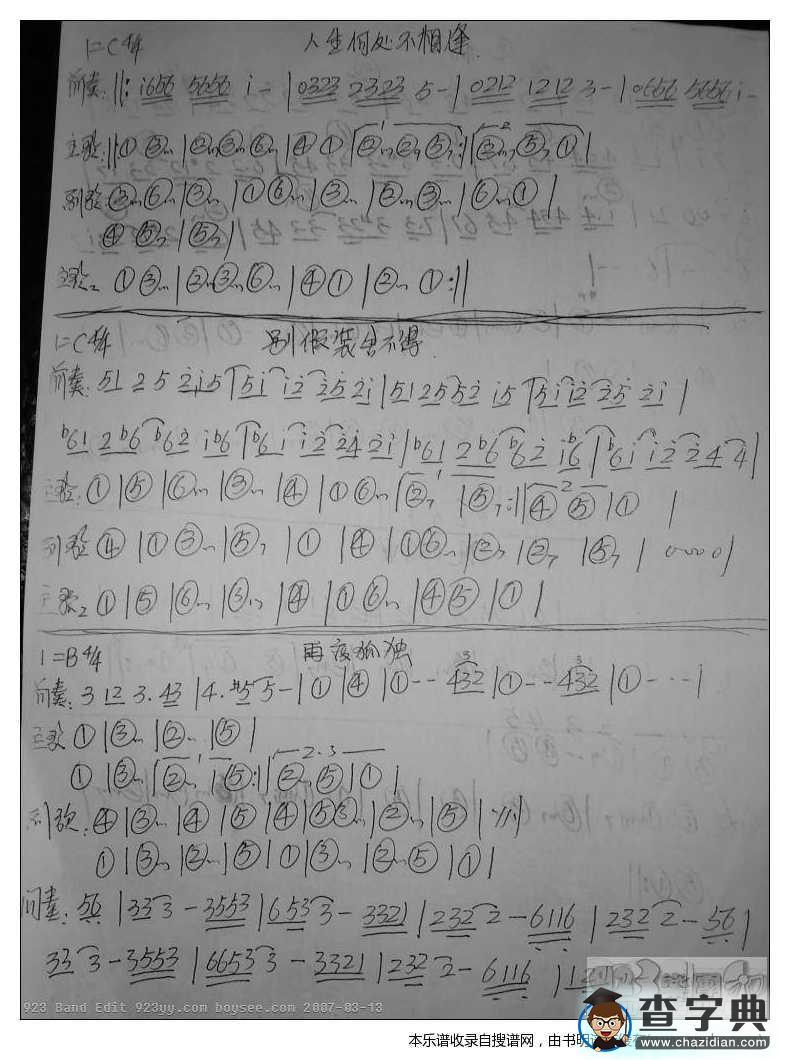 1=C 4/4 人生何处不相逢
前奏: ‖: i656 5656 i - | 0323 2323 5 - | 0212 1212 3 - | 0656 5656 i -
主歌: ‖ ① ③m | ②m ③m ⑥m | ④ ① | ②m ②m ⑤7 :‖ ②m7 ⑤7 ① |
副歌: ③m ⑥m | ③m | ① ⑥m | ③m | ②m ③m | ⑥m ① |
④ ⑤7 | ⑤7 |
主歌2 ① ③m | ②m ③m ⑥m | ④ ① | ②m ① :‖
1=C 4/4 别假装舍不得
前奏: 51 25 2i 5 | 5i i2 25 2i | 51 25 52 i5 | 5i i2 25 2i |
b61 2b6 b62 ib6 | b6i i2 24 2i | b61 2b6 b62 ib6 | b6i i2 24 4 |
主歌: ① | ⑤ | ⑥m | ③m | ④ | ① ⑥m | ②7 | ⑤7 :‖ ④ ⑤ | ① |
副歌 ④ | ① ③m | ⑤7 | ① | ④ | ① ⑥m | ②7 | ②7 | ⑤7 | 0000 |
主歌2 ① | ⑤ | ⑥m | ③m | ④ | ① ⑥m | ④ ⑤ | ① |
1=B 4/4 再度孤独
前奏: 3 12 3. 43 | 4. #5 5 - | ① | ④ | ① - - 432 | ① - - 432 | ① - - - |
主歌 ① | ③m | ②m | ⑤ |
① | ③m | ②m ⑤ :‖ ②m ⑤ | ① |
副歌: ④ | ③m | ④ | ⑤ | ④ | ⑤ ③m | ②m | ⑤ |
① | ③m | ②m | ⑤ | ① | ③m | ②m ⑤ | ① |
间奏: 56 | 33 3 - 3553 | 653 3 - 3321 | 232 2 - 6116 | 232 2 - 56 |
33 3 - 3553 | 6653 3 - 3321 | 232 2 - 6116 |
923 Band Edit 923yy.com boysee.com 2007-03-13
查字典
www.chazidian.com
本乐谱收录自搜谱网，由书明